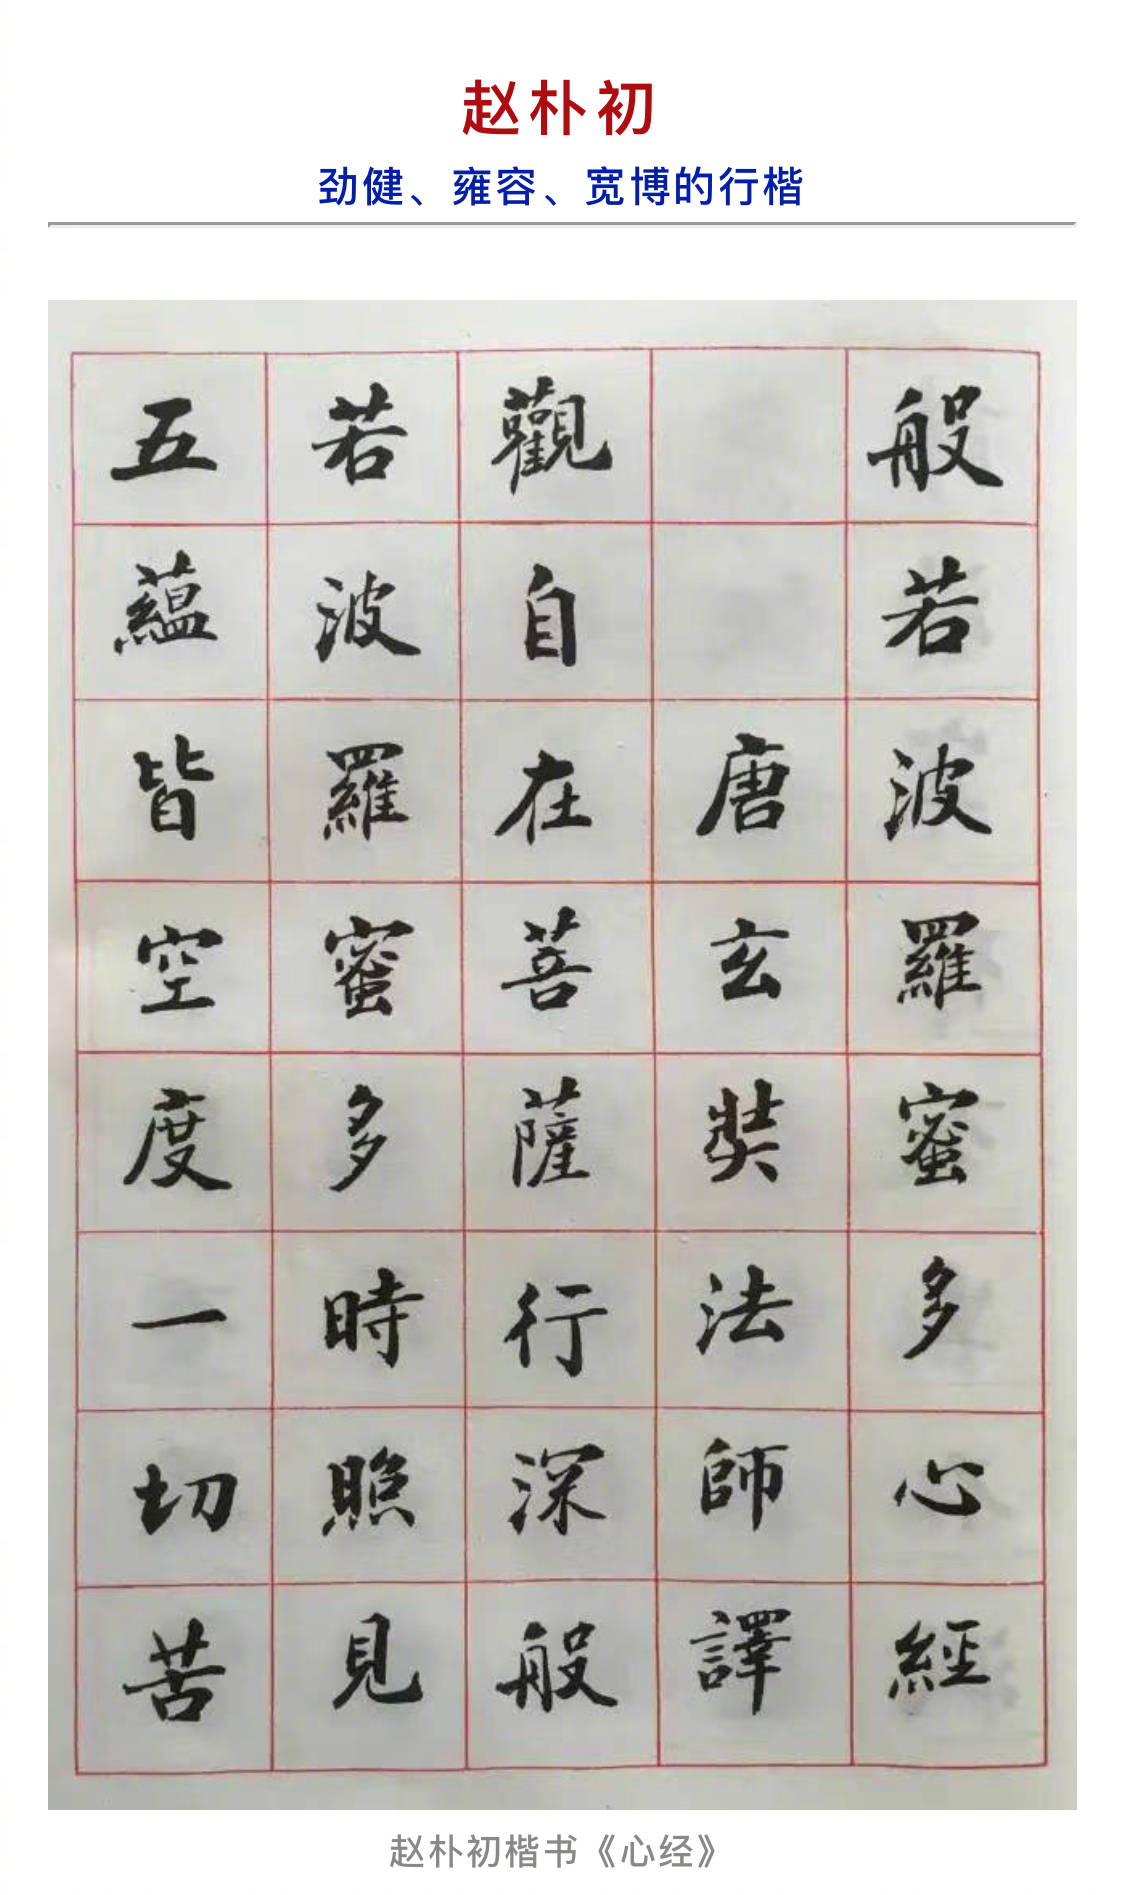 赵朴初
劲健、雍容、宽博的行楷
般若波羅蜜多心經
唐玄奘法師譯
觀自在菩薩行深般
若波羅蜜多時照見
五蘊皆空度一切苦
赵朴初楷书《心经》